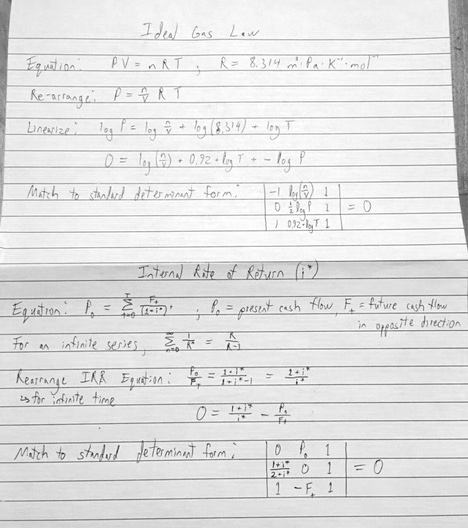 Ideal Gas Law
Equation: PV = nRT ; R = 8.314 m³·Pa·K⁻¹·mol⁻¹
Re-arrange: P = n/V R T
Linearize: log P = log n/V + log(8.314) + log T
0 = log(n/V) + 0.92 + log T + - log P
Match to standard determinant form: | -1 log(n/V) 1 |
| 0 ½ log P 1 | = 0
| 1 0.92+log T 1 |
Internal Rate of Return (i*)
Equation: P₀ = Σ Fₜ/(1+i*)ᵗ ; P₀ = present cash flow, Fₜ = future cash flow
in opposite direction
For an infinite series, Σ 1/Rⁿ = R/R-1
Rearrange IRR Equation: P₀/Fₜ = 1+i*/1+i*-1 = 1+i*/i*
for infinite time
0 = 1+i*/i* - P₀/Fₜ
Match to standard determinant form: | 0 P₀ 1 |
| 1+i*/2+i* 0 1 | = 0
| 1 -Fₜ 1 |